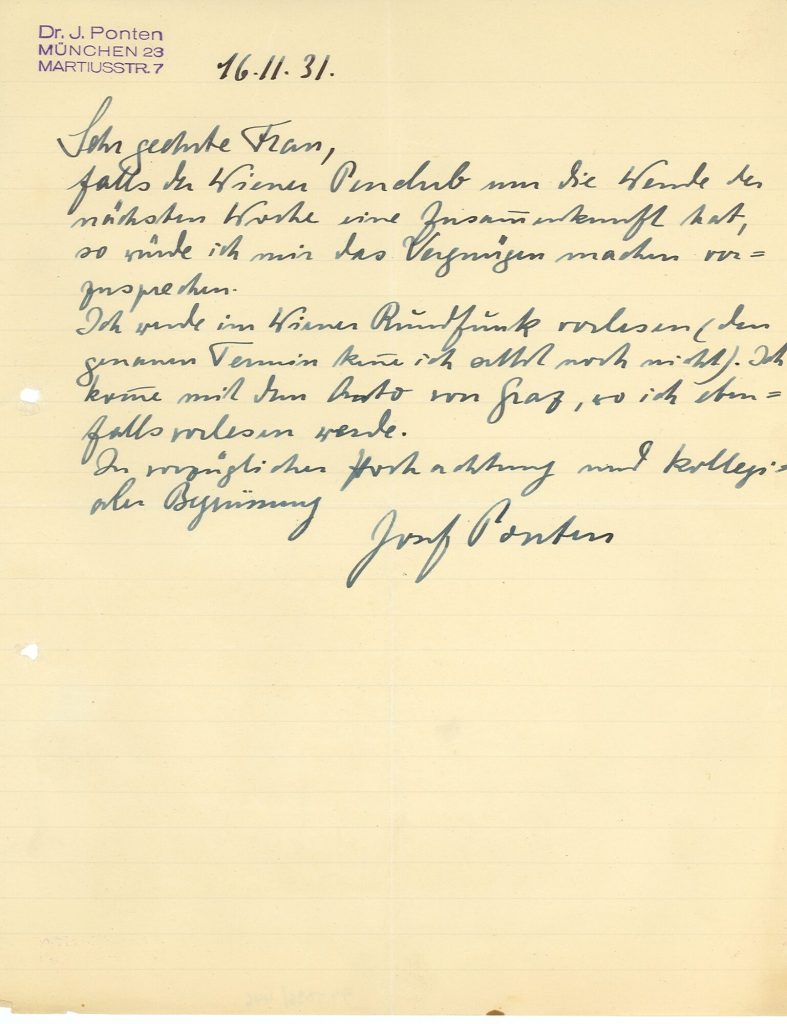 Dr. J. Ponten
MÜNCHEN 23
MARTIUSSTR. 7
16.11.31.
Sehr geehrte Frau,
falls der Wiener Penclub um die Wende der
nächsten Woche eine Zusam̅enkunft hat,
so würde ich mir das Vergnügen machen vor=
zusprechen.
Ich werde im Wiener Rundfunk vorlesen (den
genauen Termin ken̅e ich selbst noch nicht). Ich
kom̅e mit dem Auto von Graz, wo ich eben=
falls vorlesen werde.
In vorzüglicher Hochachtung und kollegi=
aler Begrüssung
Josef Ponten